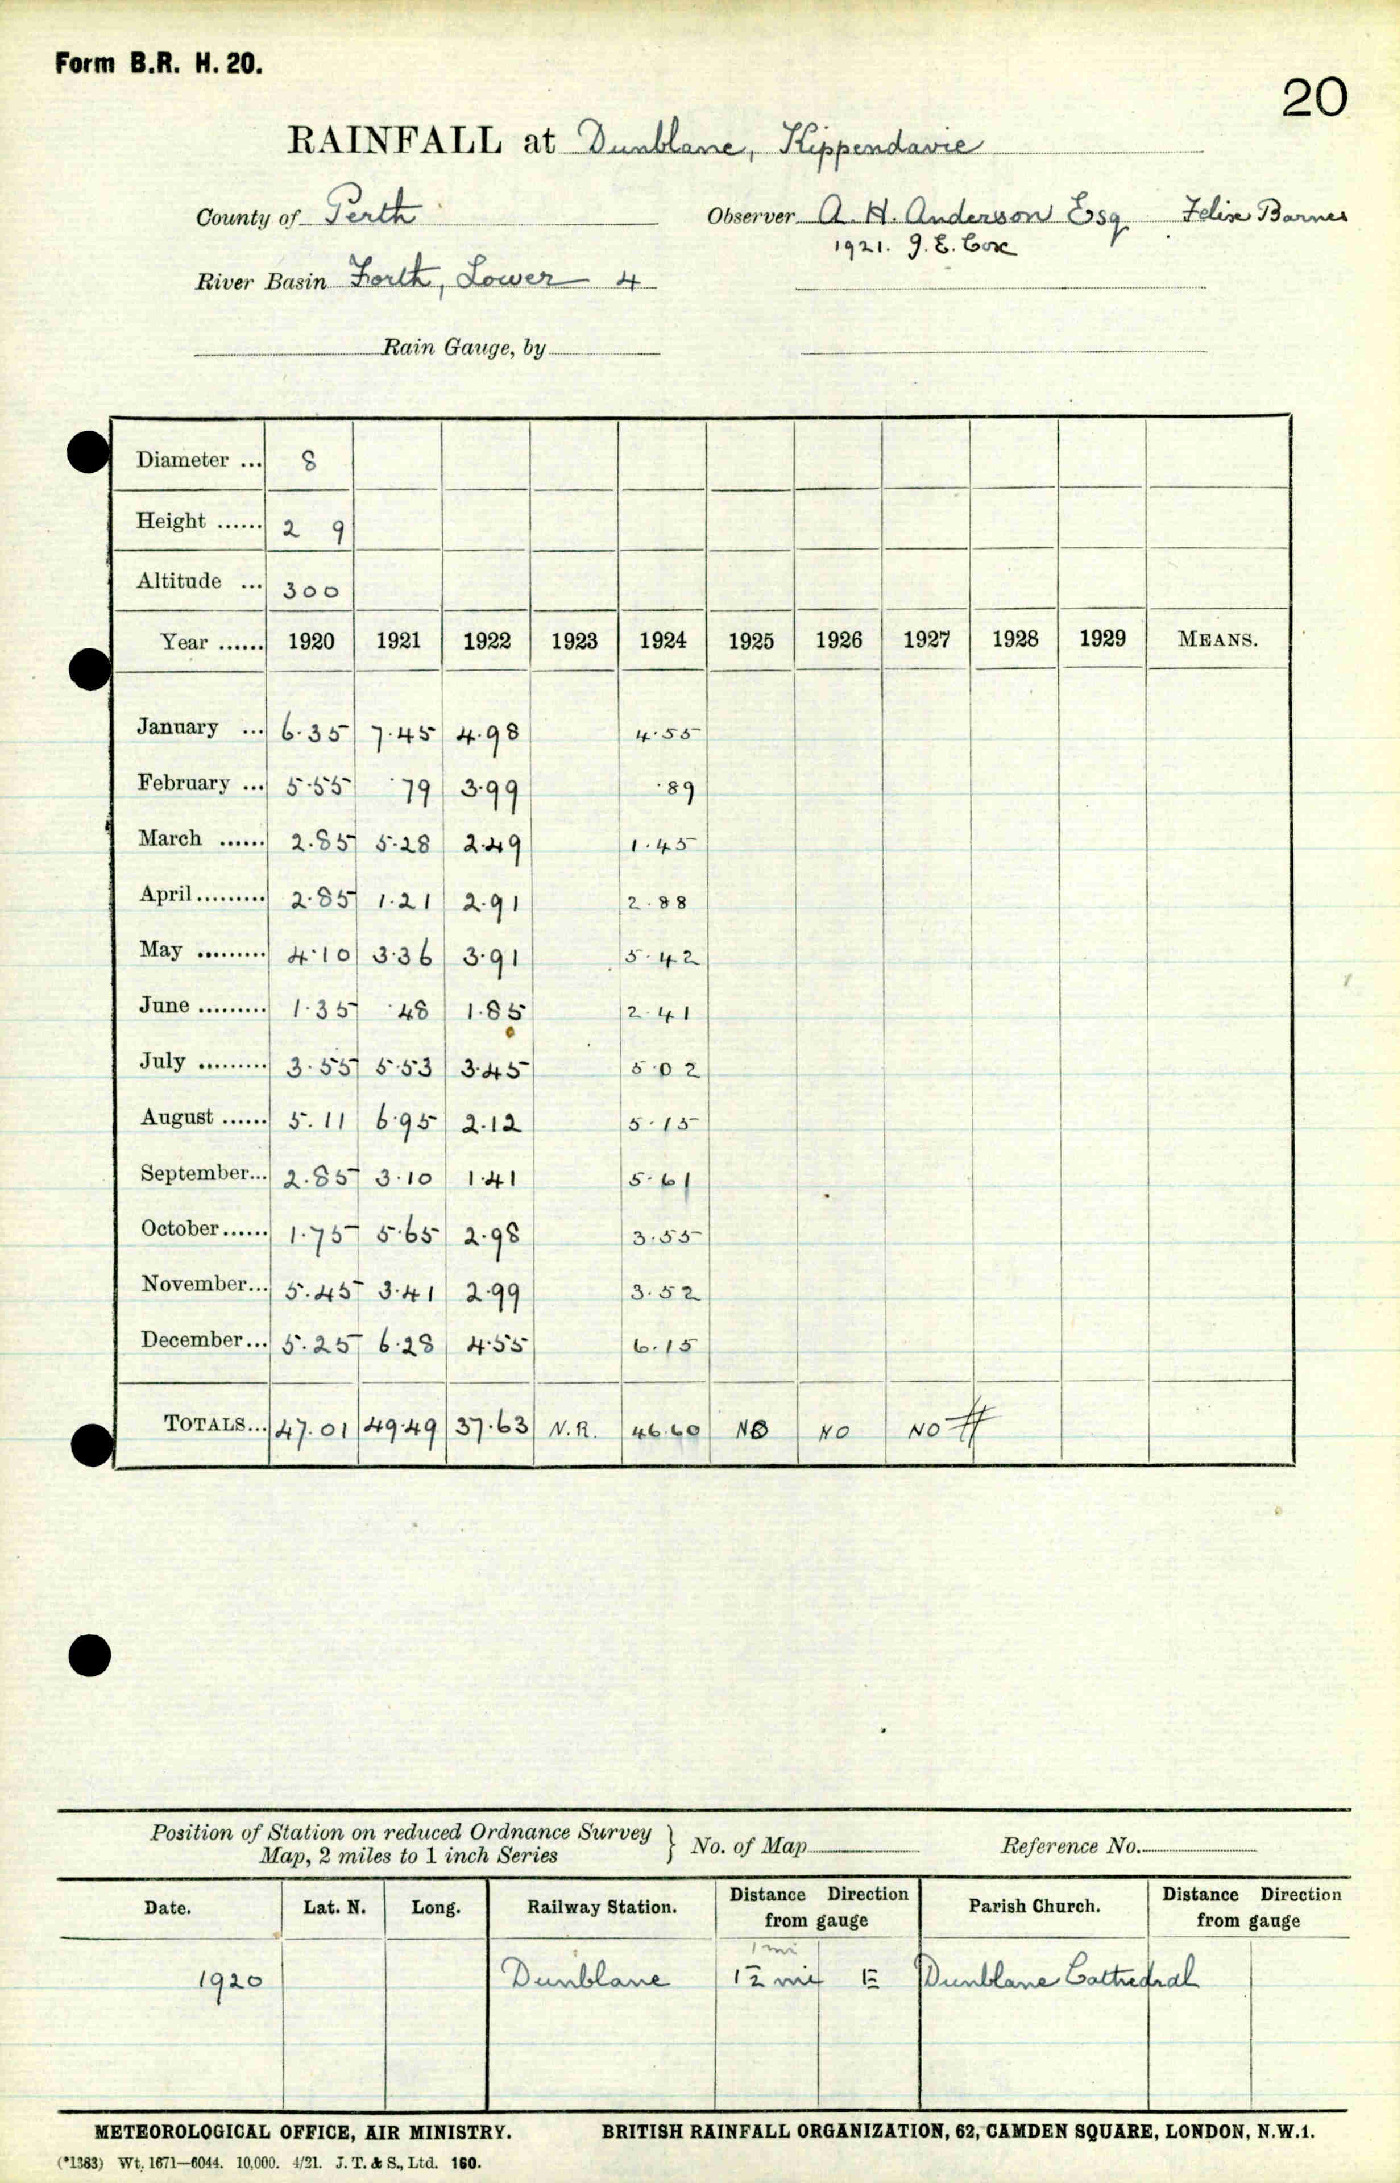 Form B.R. H. 20.
20
RAINFALL at Dunblane, Kippendavie
County of Perth Observer A. H. Anderson Esq Felix Barnes
1921. J. E. Cox
River Basin Forth, Lower 4
Rain Gauge, by
Diameter ... 8
Height ...... 2 9
Altitude ... 300
Year ...... 1920 1921 1922 1923 1924 1925 1926 1927 1928 1929 MEANS.
January ... 6.35 7.45 4.98 4.55
February ... 5.55 .79 3.99 .89
March ...... 2.85 5.28 2.49 1.45
April ......... 2.85 1.21 2.91 2.88
May ......... 4.10 3.36 3.91 5.42
June ......... 1.35 .48 1.85 2.41
July ......... 3.55 5.53 3.45 5.02
August ...... 5.11 6.95 2.12 5.15
September... 2.85 3.10 1.41 5.61
October...... 1.75 5.65 2.98 3.55
November... 5.45 3.41 2.99 3.52
December... 5.25 6.28 4.55 6.15
TOTALS... 47.01 49.49 37.63 N.R. 46.60 NO NO NO
Position of Station on reduced Ordnance Survey
Map, 2 miles to 1 inch Series } No. of Map Reference No.
Date. Lat. N. Long. Railway Station. Distance Direction from gauge Parish Church. Distance Direction from gauge
1 mi
1920 Dunblane 1½ mi E Dunblane Cathedral
METEOROLOGICAL OFFICE, AIR MINISTRY. BRITISH RAINFALL ORGANIZATION, 62, CAMDEN SQUARE, LONDON, N.W.1.
(*1383) Wt. 1671—6044. 10,000. 4/21. J. T. & S., Ltd. 160.